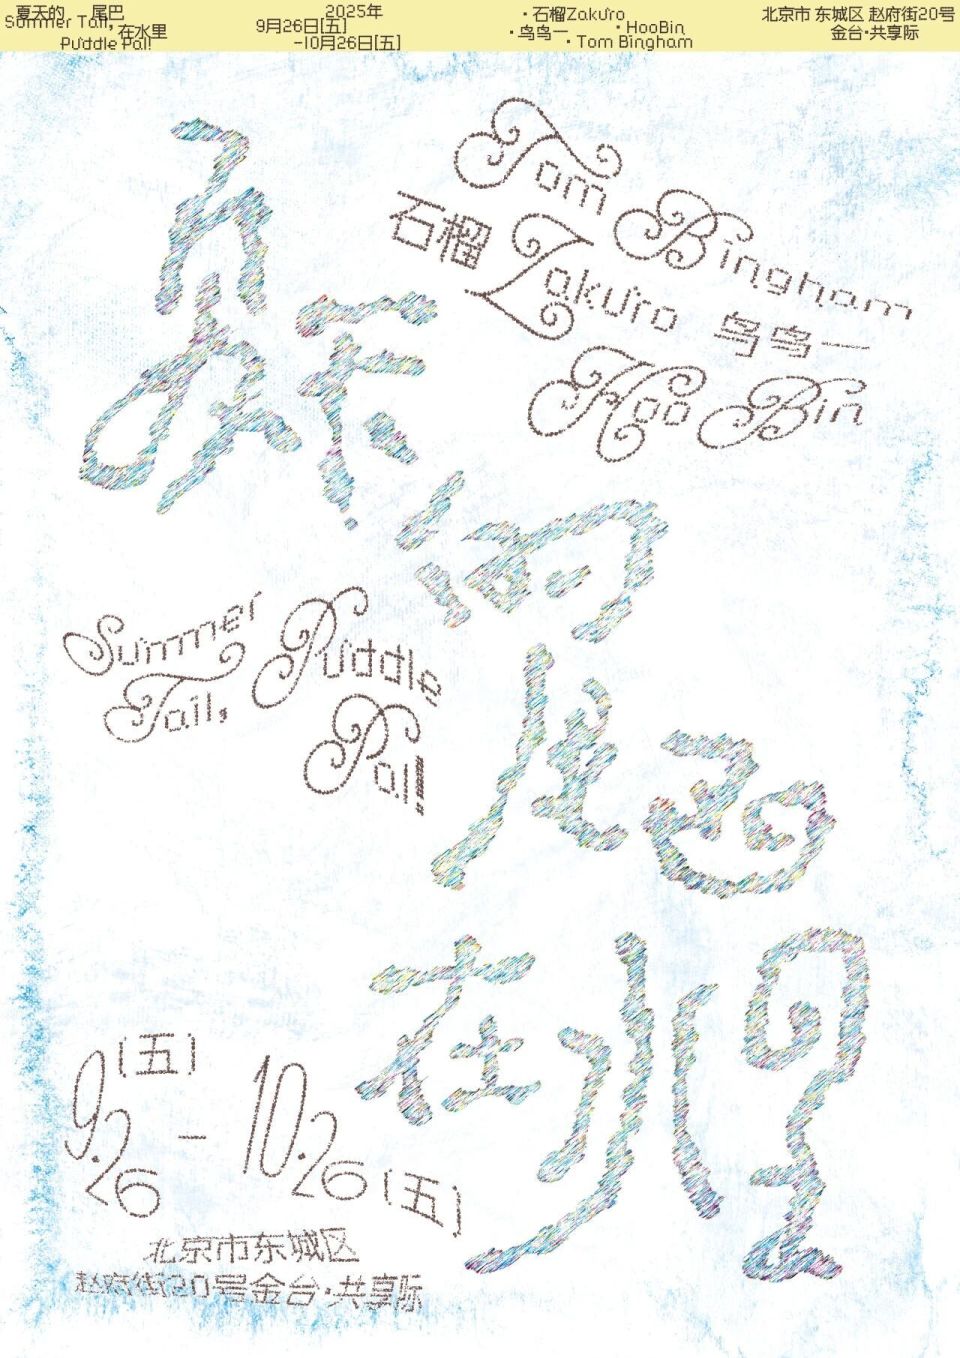 夏天的 尾巴
Summer Tail, 在水里
Puddle Pal!
2025年
9月26日[五]
-10月26日[五]
·石榴Zakuro
·鸟鸟一 ·HooBin
·Tom Bingham
北京市 东城区 赵府街20号
金台·共享际
Tom Bingham
石榴 Zakuro 鸟鸟一
Hoo Bin
夏天的尾巴
Summer Puddle
Tail, Pal!
在水里
9.26 (五) - 10.26 (五)
北京市东城区
赵府街20号金台·共享际